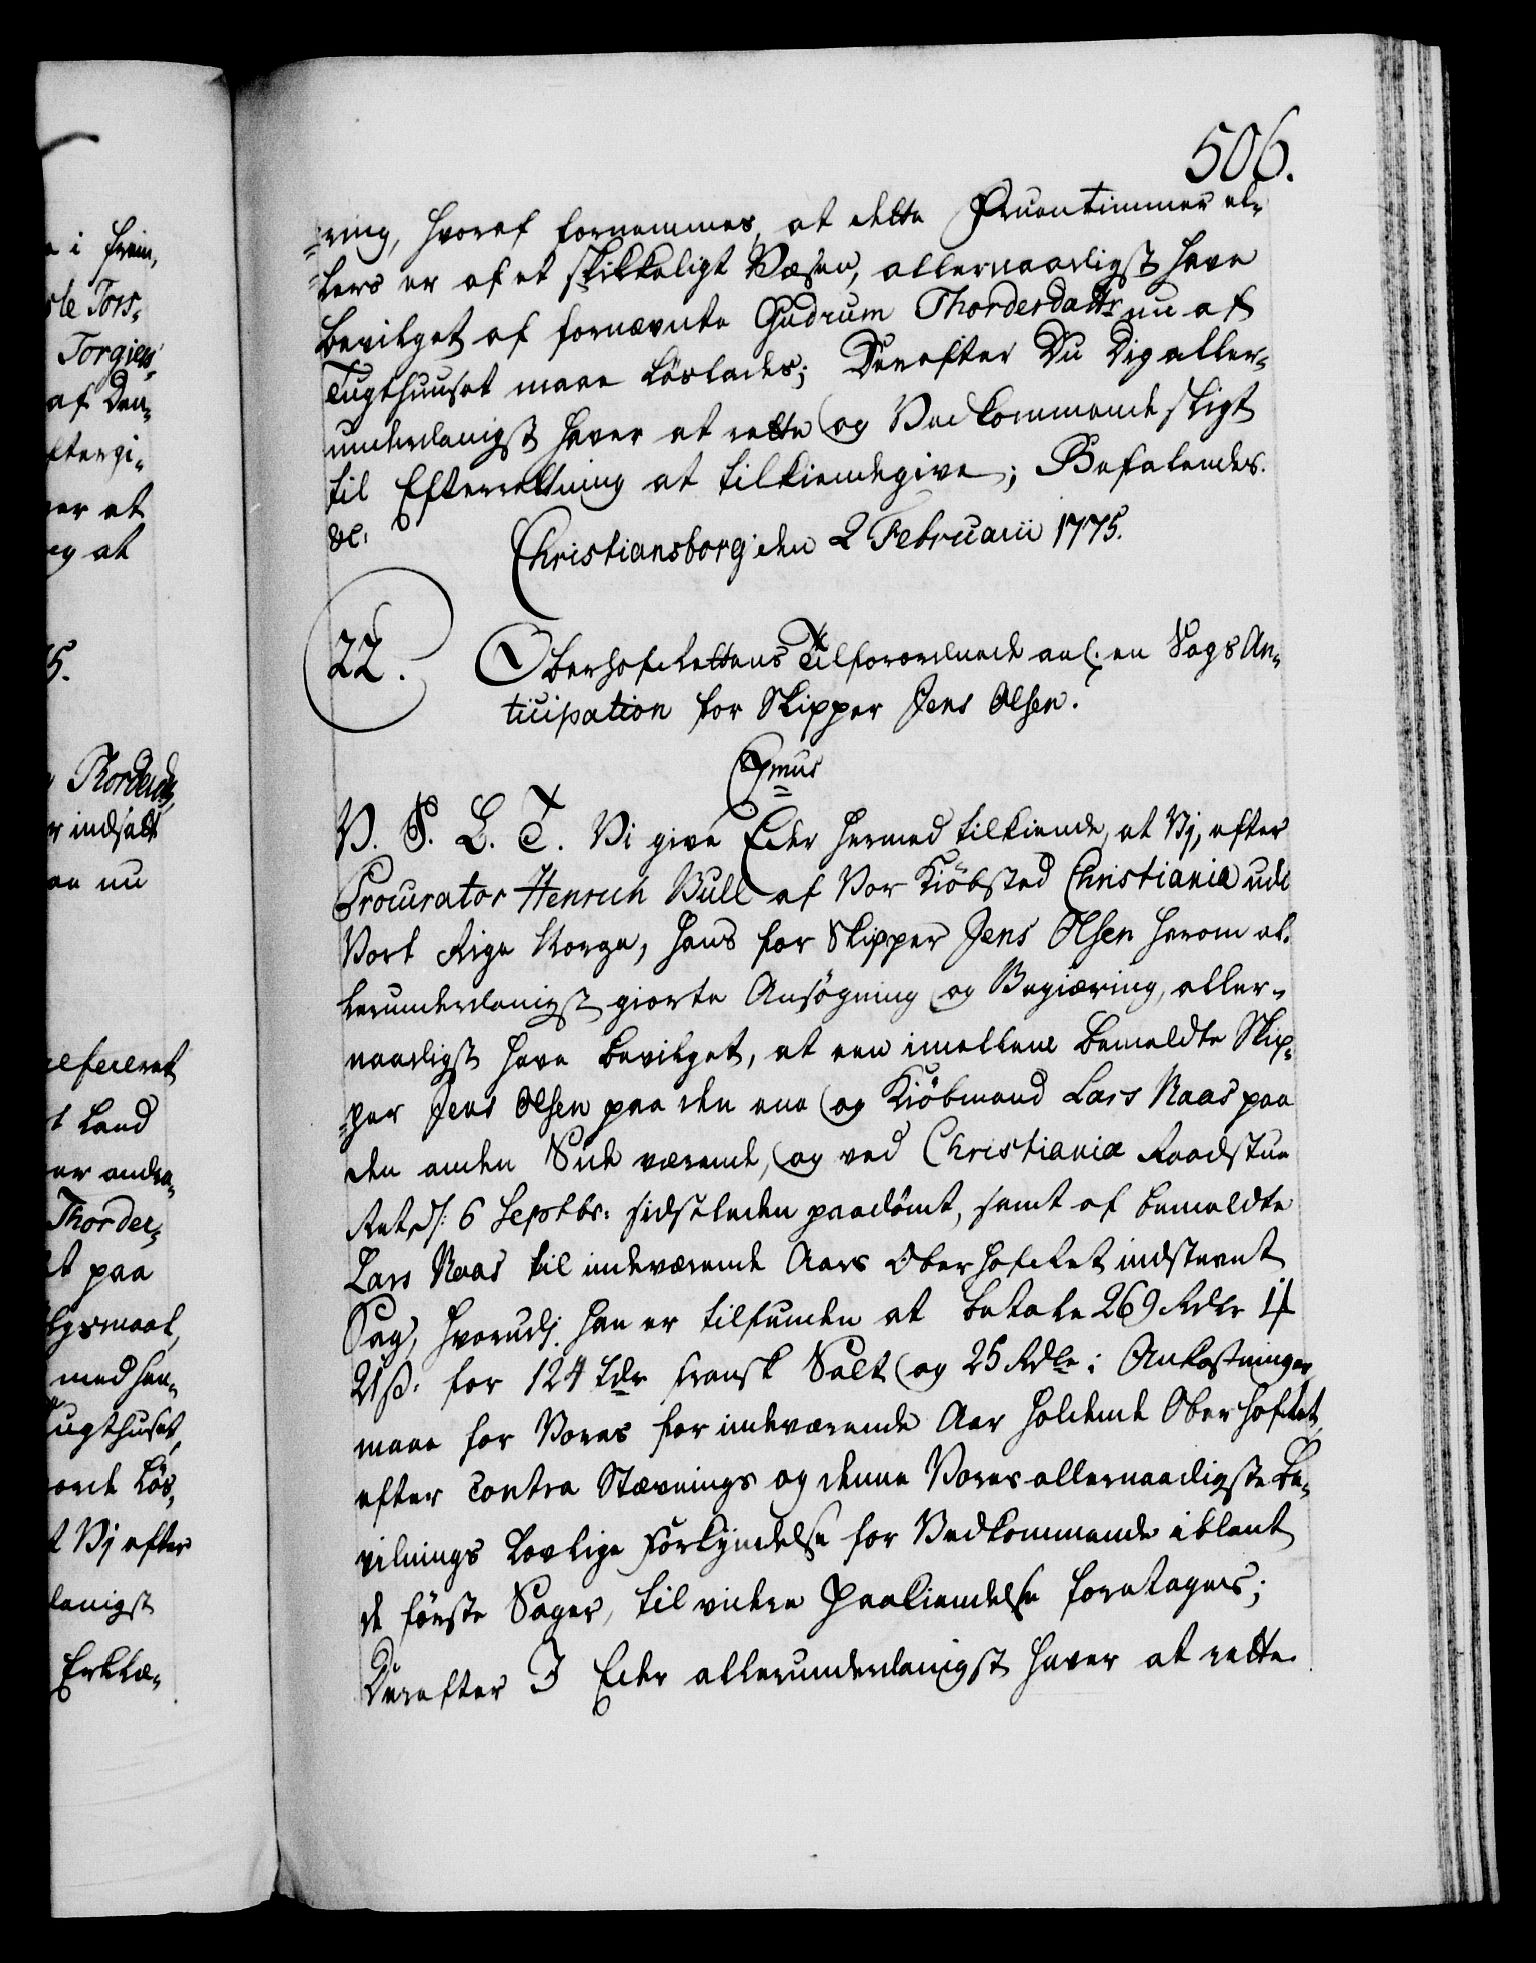 506.
ring, hvoraf fornemmes, at dette Fruentimmer el-
lers er af et skikkeligt Væsen, allernaadigst have
bevilget at fornævnte Gudrum Thorderdattr nu af
Tugthuuset maae löslades; Derefter Du Dig aller-
underdanigst haver at rette og Vedkommende sligt
til Efterretning at tilkiendegive; Befalendes.
&c.
Christiansborg den 2 Februarii 1775.
22.
Oberhofrettens Tilforordnede anl: en Sags An-
ticipation for Skipper Jens Olsen.
V. S. G. T. Vi give Eder hermed tilkiende, at Vj, efter
Procurator Henrich Bull af Vor Kiöbsted Christiania udi
Vort Rige Norge, hans for Skipper Jens Olsen herom al-
lerunderdanigst giorte Ansögning og Begiæring, aller-
naadigst have bevilget, at een imellem bemeldte Skip-
per Jens Olsen paa den ene og Kiöbmand Lars Naas paa
den anden Side værende, og ved Christiania Raadstue
Ret d: 6 Septbr: sidstleden paadömt, samt af bemeldte
Lars Naas til indeværende Aars Oberhofret indstevnt
Sag, hvorudj han er tilfunden at betale 269 Rdlr 1 ₰
21 ß: for 124 tdr fransk Salt og 25 Rdlr i Omkostninger
maae for Vores for indeværende Aar holdende Oberhofret,
efter Contra Stævnings og denne Vores allernaadigste Be-
vilnings lovlige Forkyndelse for Vedkommende iblant
de förste Sager, til videre Paakiendelse foretages;
Derefter I Eder allerunderdanigst haver at rette.